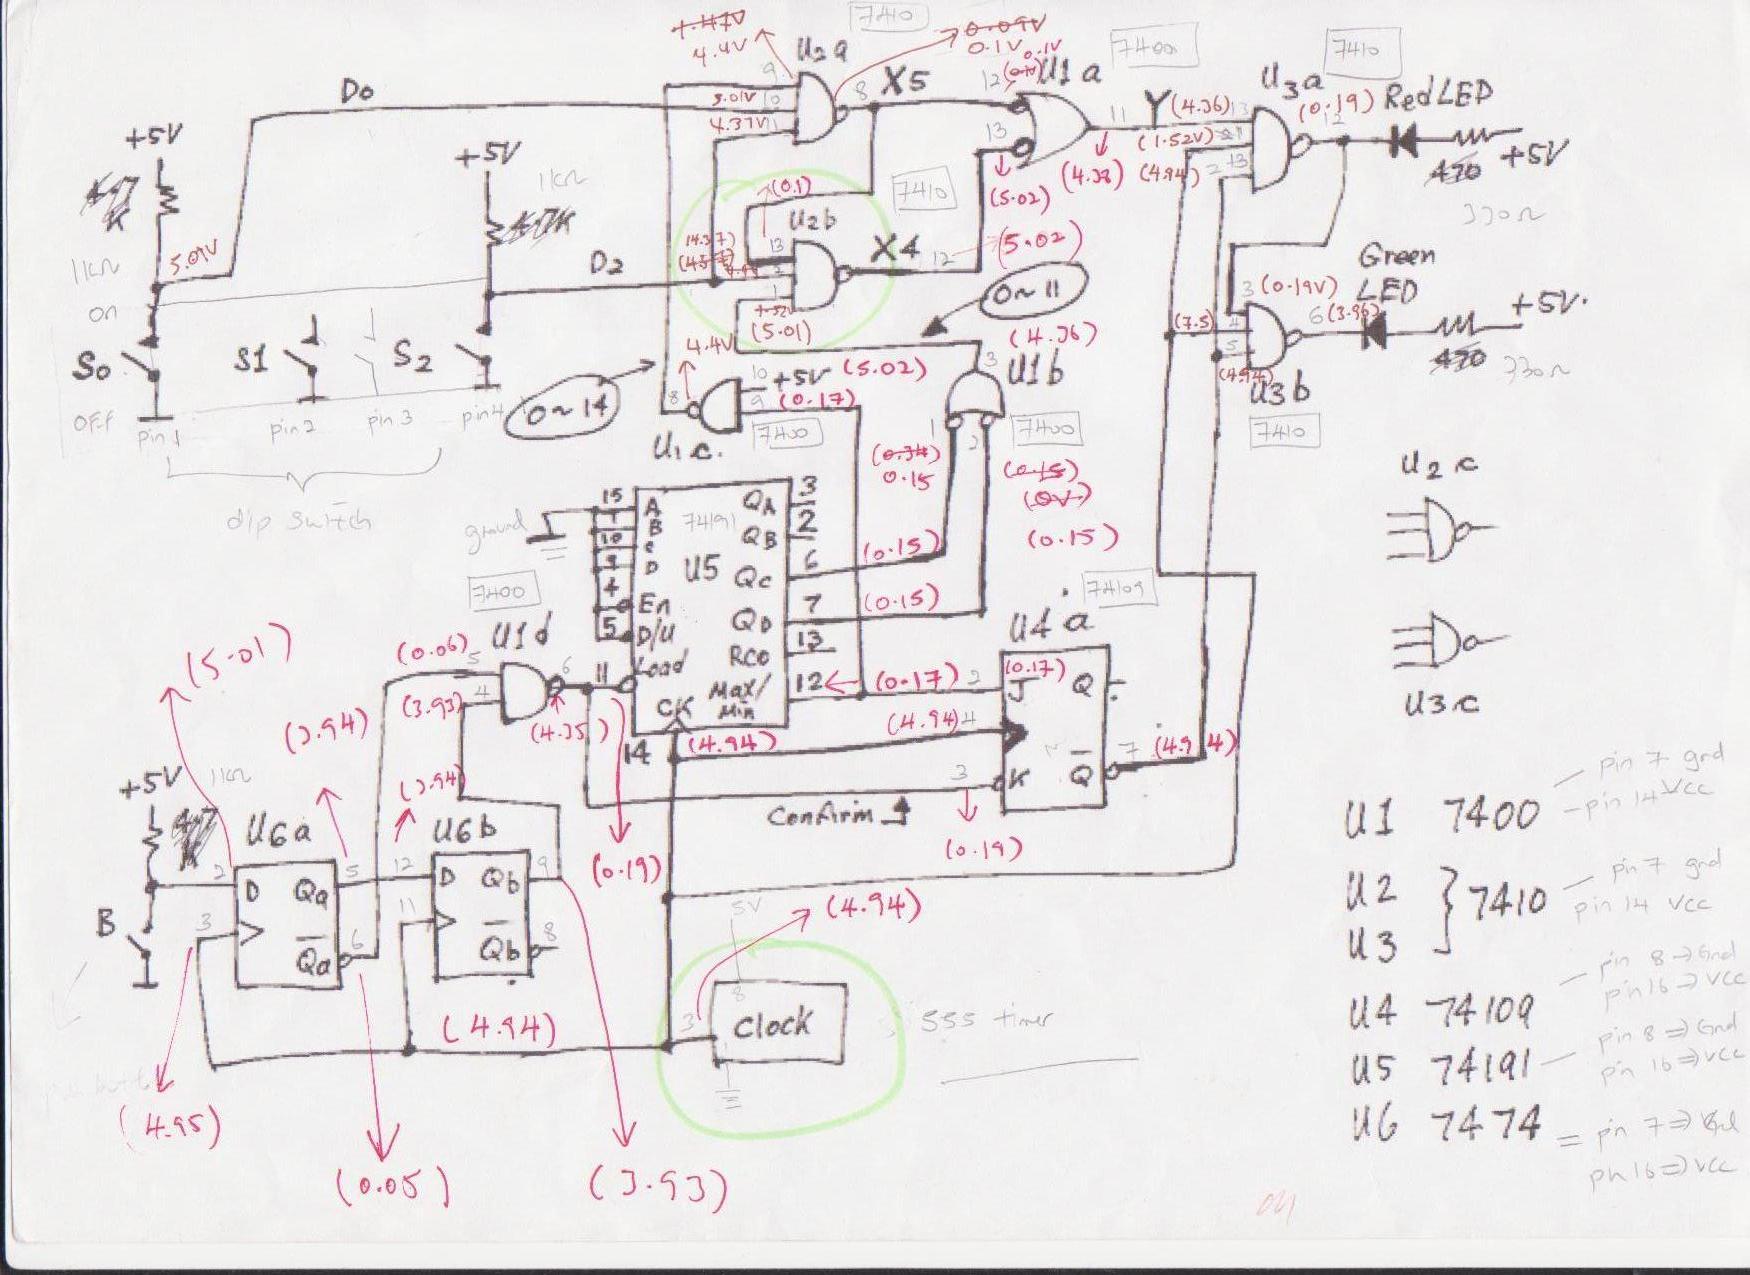 4.4V
U2a
7410
0.09V
0.1V
0.1V
12
U1a
7400
7410
U3a
9
8
X5
D0
5.01V
10
4.37V
11
13
11
Y
(4.36)
13
(0.19)
12
Red LED
(1.52V)
+5V
+5V
+5V
1kΩ
(4.38)
(4.94)
2
13
470
330Ω
4.7K
(0.1)
7410
(5.02)
U2b
(4.37)
13
X4
12
(5.02)
Green
LED
5.01V
1kΩ
D2
2
1
(5.01)
0~11
(4.36)
3
(0.19V)
6
(3.96)
+5V
on
4.4V
(5.02)
3
U1b
(7.5)
4
5
(4.94)
470
330Ω
U3b
S0
S1
S2
OFF
pin 1
pin 2
pin 3
pin 4
0~14
8
10
+5V
9
(0.17)
7400
U1c.
1
2
7400
7410
(0.34)
0.15
(0.15)
(0V)
U2c
dip switch
ground
15
1
10
9
4
5
A
B
C
D
En
D/U
Load
CK
74191
U5
QA
QB
QC
QD
RCO
Max/
Min
3
2
6
7
13
12
(0.15)
(0.15)
(0.15)
7400
U1d
74109
U4a
(5.01)
(0.06)
5
4
(3.93)
6
11
(4.35)
14
(0.17)
2
(0.17)
J
Q
(4.94)
(4.94)
4
7
(4.94)
K
Q
3
U3c
(3.94)
(3.94)
Confirm
(0.19)
(0.19)
+5V
1kΩ
U6a
U6b
2
D
Qa
5
12
D
Qb
9
B
3
Qa
6
11
Qb
8
5V
(4.94)
8
3
Clock
555 timer
(4.94)
(4.95)
(0.05)
(3.93)
U1 7400
pin 7 gnd
pin 14 Vcc
U2
U3
7410
pin 7 gnd
pin 14 Vcc
U4 74109
pin 8 → Gnd
pin 16 → Vcc
U5 74191
pin 8 ⇒ Gnd
pin 16 ⇒ Vcc
U6 7474
= pin 7 ⇒ Gnd
pin 16 ⇒ Vcc